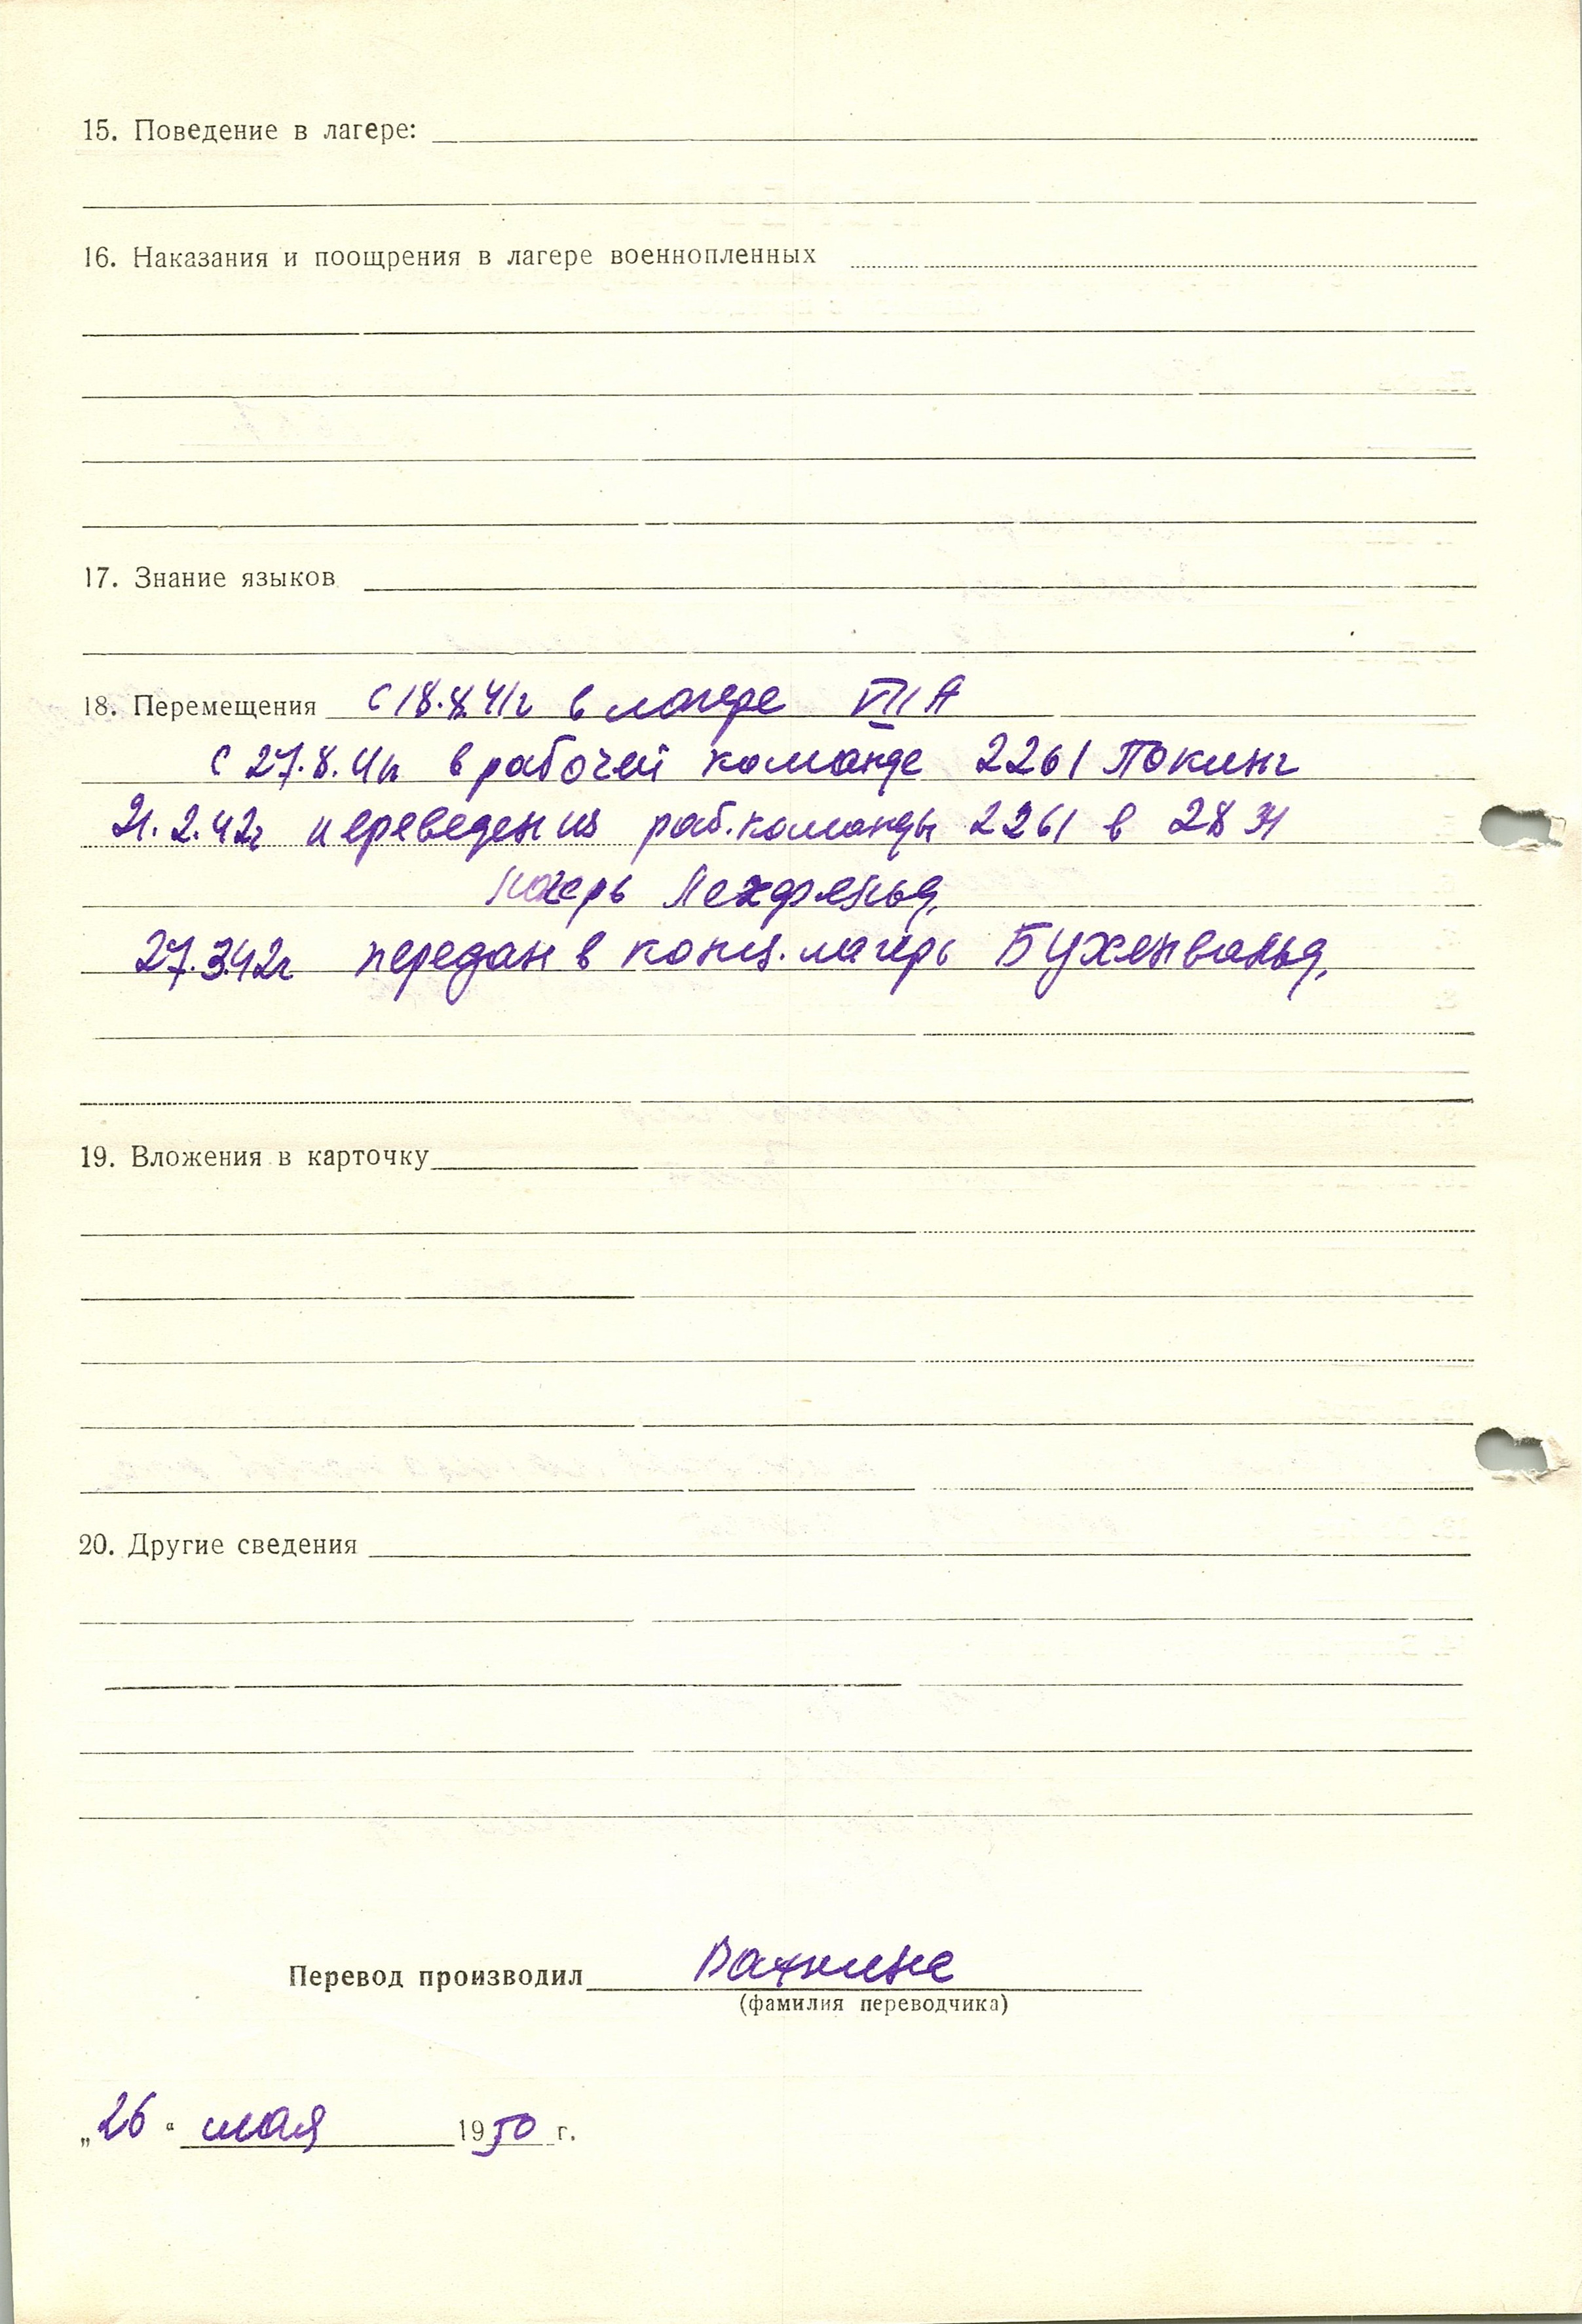 15. Поведение в лагере:
16. Наказания и поощрения в лагере военнопленных
17. Знание языков
18. Перемещения с 18.8.41г в лагере VII А
с 27.8.41г в рабочей команде 2261 Покинг
21.2.42г переведен из раб. команды 2261 в 2831
лагерь Лехфельд,
27.3.42г передан в конц. лагерь Бухенвальд.
19. Вложения в карточку
20. Другие сведения
Перевод производил
(фамилия переводчика)
„26“ мая 1950 г.